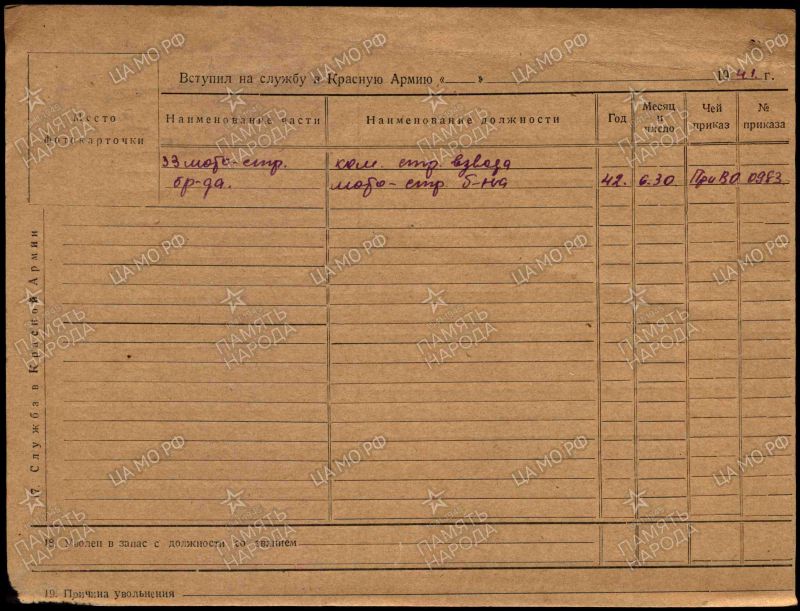 Вступил на службу в Красную Армию «___» 1941 г.
Место фотокарточки
Наименование части
Наименование должности
Год
Месяц и число
Чей приказ
№ приказа
33 мото-стр. ком. стр. взвода
бр-да. мото-стр. б-на 42. 6.30 ПриВО 0983
17. Служба в Красной Армии
18. Уволен в запас с должности со званием
19. Причина увольнения
ЦА МО РФ
ПАМЯТЬ НАРОДА